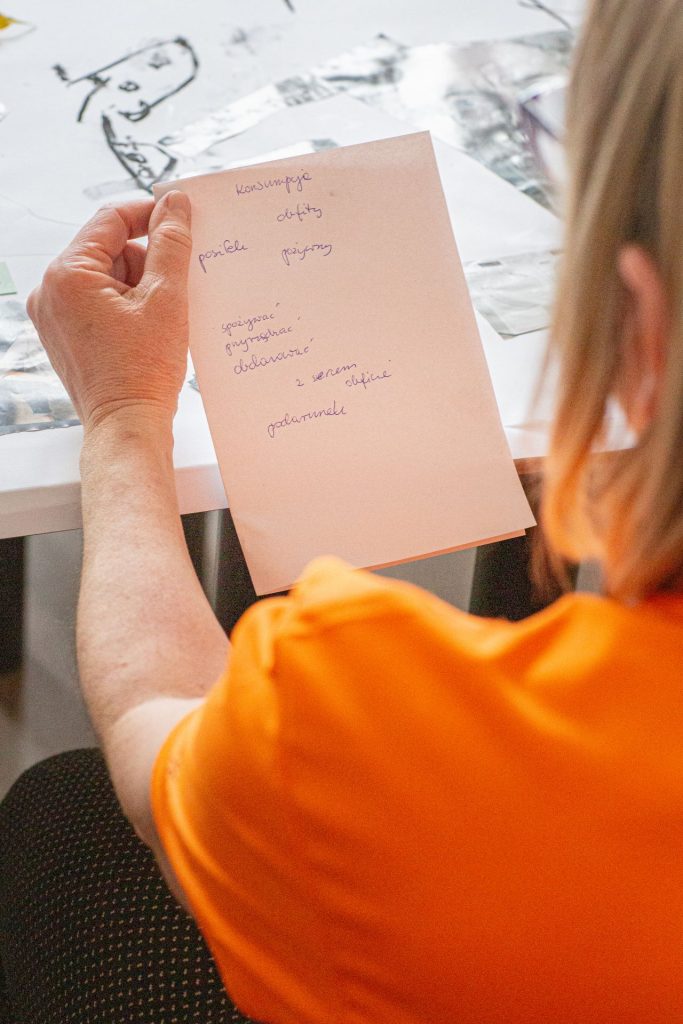 konsumpcja
obfity
posiłek pożywny
spożywać
przyrządzać
obdarować
z serem
obficie
podarunek